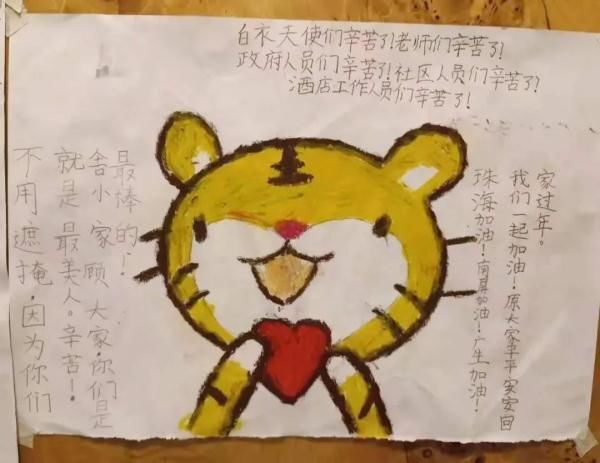 白衣天使们辛苦了!老师们辛苦了!
政府人员们辛苦了!社区人员们辛苦了?
酒店工作人员们辛苦了!
不用遮掩,因为你们
就是最美人。辛苦!
舍小家顾大家,你们是
最棒的!
珠海加油!南屏加油!广生加油!
我们一起加油!原大家平平安安回
家过年。